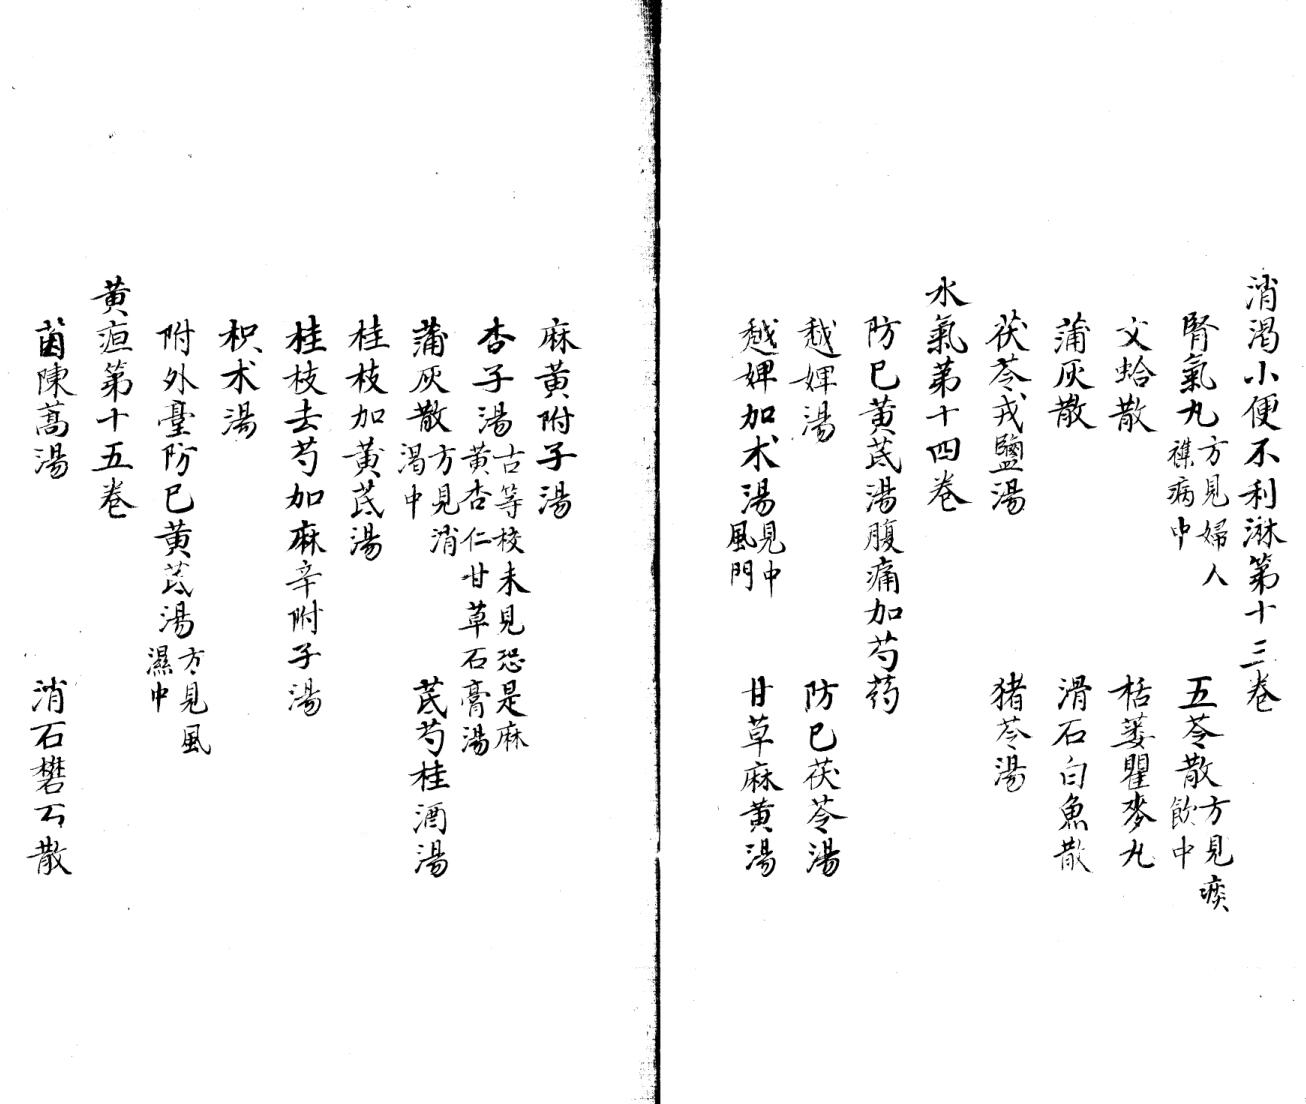 消渴小便不利淋第十三卷
腎氣丸方見婦人襍病中 五苓散方見痰飲中
文蛤散 栝蔞瞿麥丸
蒲灰散 滑石白魚散
茯苓戎鹽湯 猪苓湯
水氣第十四卷
防已黃芪湯腹痛加芍药
越婢湯 防已茯苓湯
越婢加术湯見中風門 甘草麻黄湯
麻黃附子湯
杏子湯古等校未見恐是麻黄杏仁甘草石膏湯
蒲灰散方見消渴中 芪芍桂酒湯
桂枝加黃芪湯
桂枝去芍加麻辛附子湯
枳术湯
附外臺防已黄芪湯方見風濕中
黄疸第十五卷
茵陳蒿湯 消石礬石散